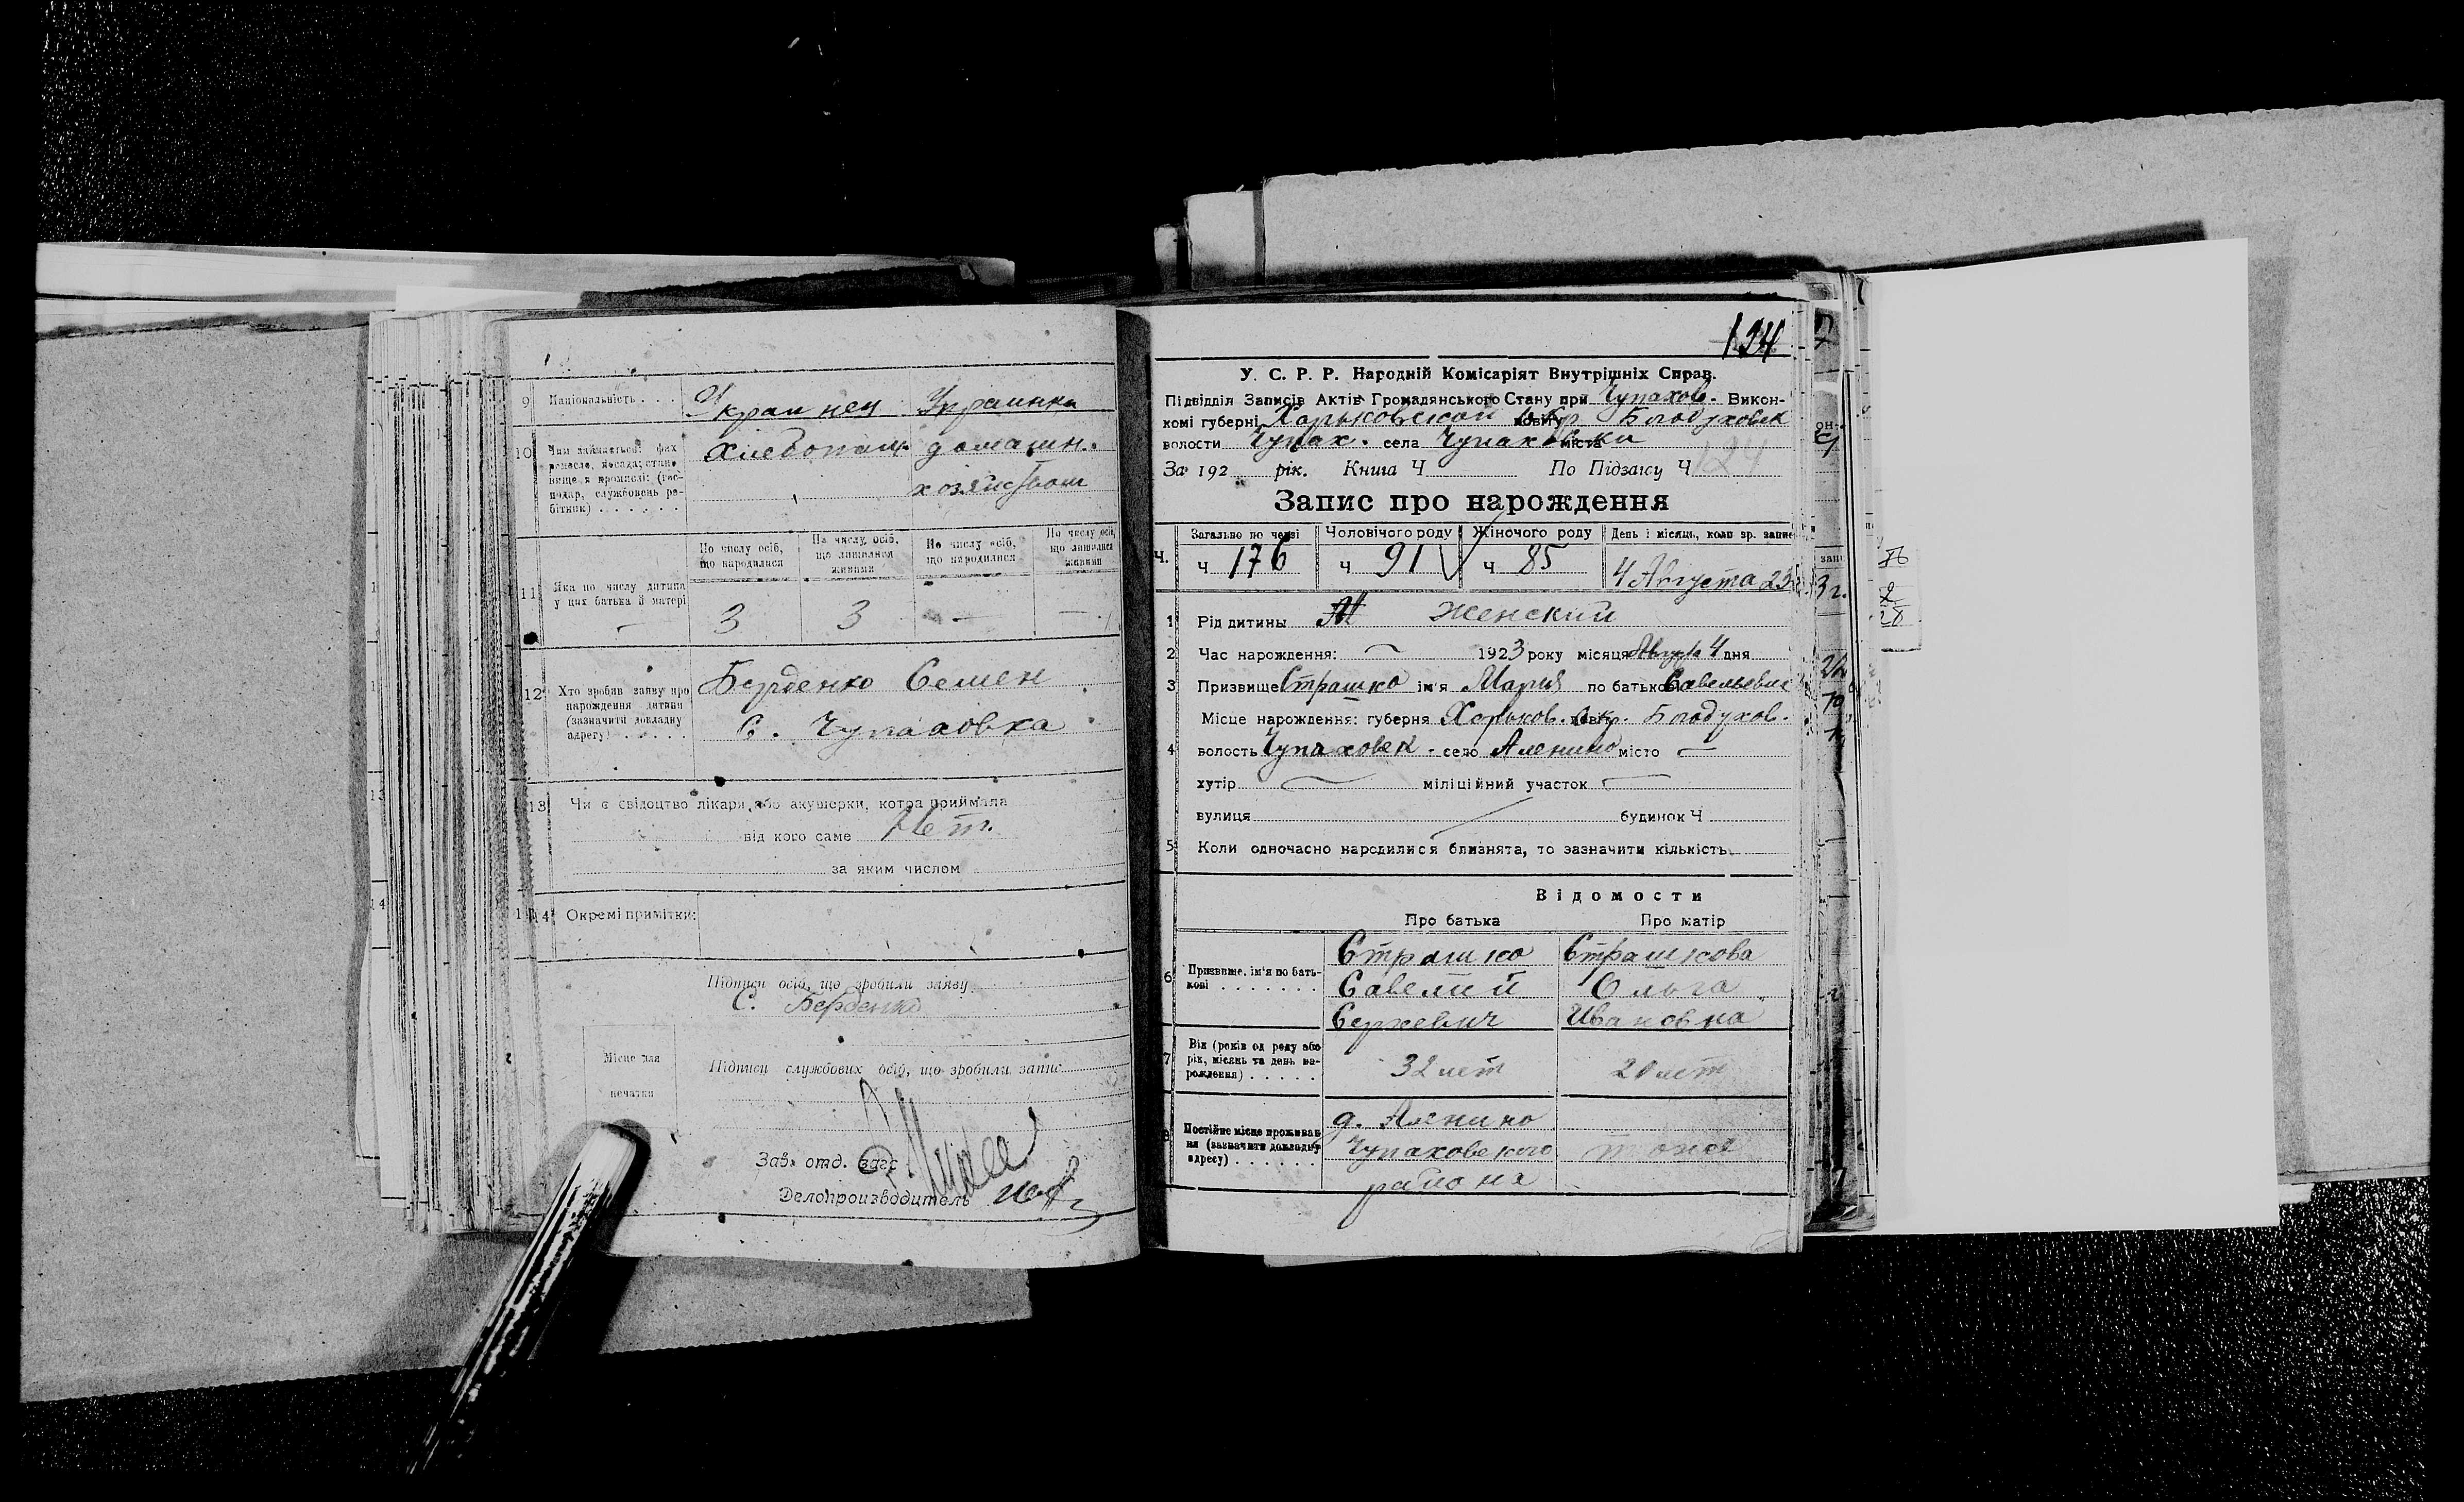 9 Національність . . . Украинец Украинка
10 Чим займається: фах ремесло, посада; стано-вище в промислі: (гос-подар, службовець ра-бітник) . . . . . . Хлебопаш. домашн. хозяйством
По числу осіб, що народилися
По числу осіб, що лишилися живими
По числу осіб, що народилися
По числу осіб, що лишилися живими
11 Яка по числу дитина у цих батька й матері — 3 3 — —
12 Хто зробив заяву про нарождення дитини (зазначити докладну адресу) . . . . . Берденко Семен
с. Чупаховка
13 Чи є свідоцтво лікаря, або акушерки, котра приймала
від кого саме Нет.
за яким числом
14 Окремі примітки:
Підписи осіб, що зробили заяву
С. Берденко
Місце для печатки
Підписи службових осіб, що зробили запис
Зав. отд. загс
Делопроизводитель
124
У. С. Р. Р. Народній Комісаріят Внутрішніх Справ.
Підвідділ Записів Актів Громадянського Стану при Чупахов- Викон-
комі губерні Харьковской повіту Окр. Богодуховск
волости Чупах. села Чупаховки міста
За 192 рік. Книга Ч По Підзагсу Ч 124
Запис про нарождення
Ч. Загально по черзі Чоловічого роду Жіночого роду День і місяць, коли зр. запис
ч 176 ч 91 ч 85 4 Августа 23
1 Рід дитины М Женский
2 Час нарождення: 1923 року місяця Августа 4 дня
3 Призвище Страшко ім'я Мария по батькові Савельевна
Місце нарождення: губерня Харьков. повіт Окр. Богодухов.
4 волость Чупаховск - село Аленино місто —
хутір — міліційний участок —
вулиця будинок Ч
5 Коли одночасно народилися близнята, то зазначити кількість
Відомости
Про батька Про матір
6 Призвище, ім'я по бать-кові . . . . . . . Страшко Страшкова
Савелий Ольга
Сергеевич Ивановна
7 Вік (років од роду або рік, місяць та день на-рождення) . . . . . 32 лет лет
8 Постійне місце проживан-ня (зазначити докладну адресу) . . . . . . д. Аленино
Чупаховского тоже
района